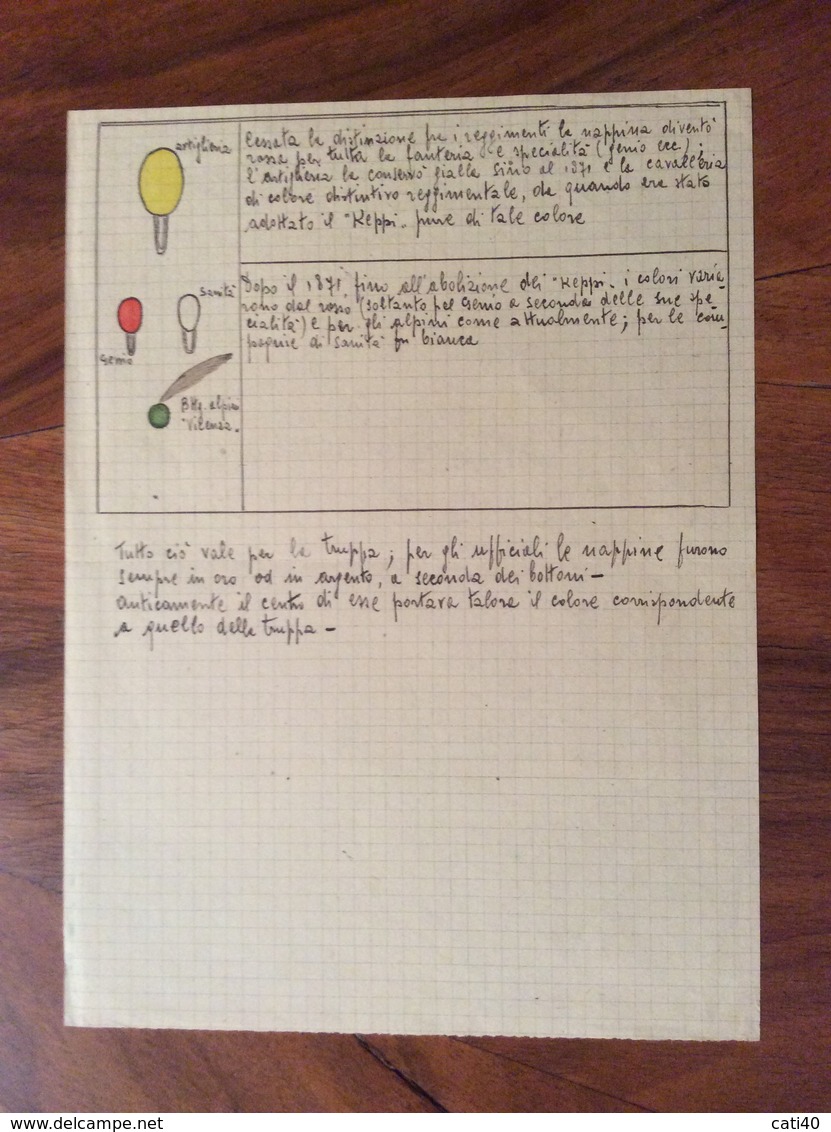 artiglieria
Cessata la distinzione fra i reggimenti la nappina diventò
rossa per tutta la fanteria e specialità (genio ecc);
l'artiglieria la conservò gialla sino al 1871 e la cavalleria
di colore distintivo reggimentale, da quando era stato
adottato il "Keppi" pure di tale colore
sanità
genio
Btg. alpini
"Vicenza"
Dopo il 1871, fino all'abolizione dei "Keppi" i colori varia-
rono dal rosso (soltanto pel Genio a seconda delle sue spe-
cialità) e per gli alpini come attualmente; per le com-
pagnie di sanità fu bianca
Tutto ciò vale per la truppa; per gli ufficiali le nappine furono
sempre in oro od in argento, a seconda dei bottoni -
anticamente il centro di esse portava talora il colore corrispondente
a quello della truppa -
cati40